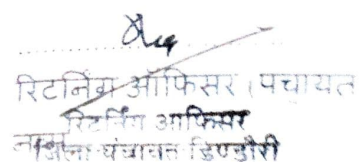 रिटर्निंग ऑफिसर (पंचायत
रिटर्निंग आफिसर
नाम
जिला पंचायत डिण्डौरी